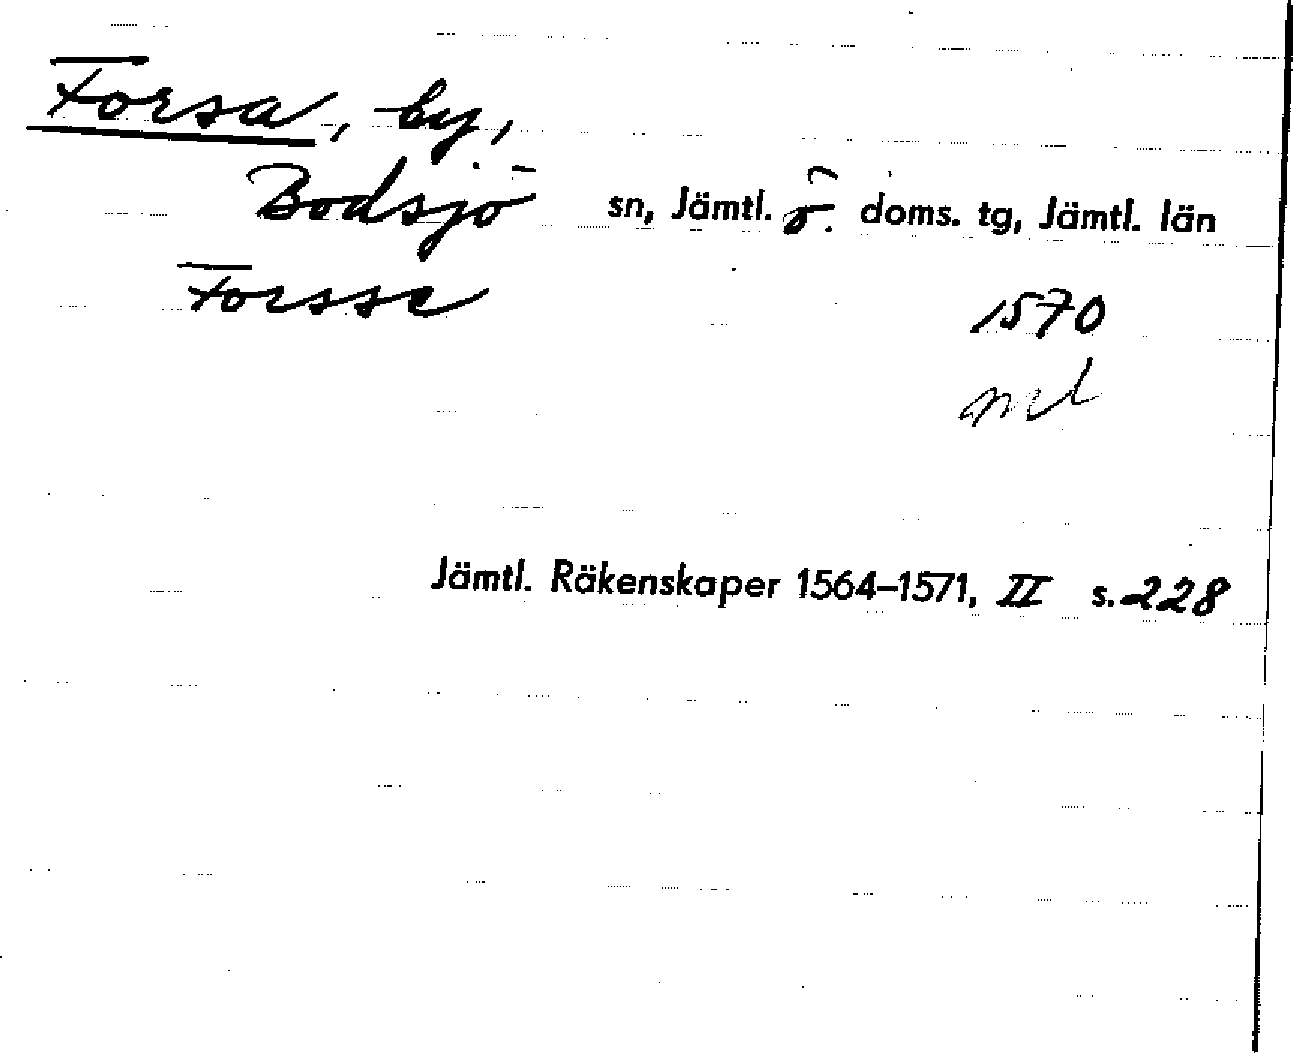 Forsa, by,
Bodsjö sn, Jämtl. ö. doms. tg, Jämtl. län
Forsse 1570
Jämtl. Räkenskaper 1564–1571, II s. 228